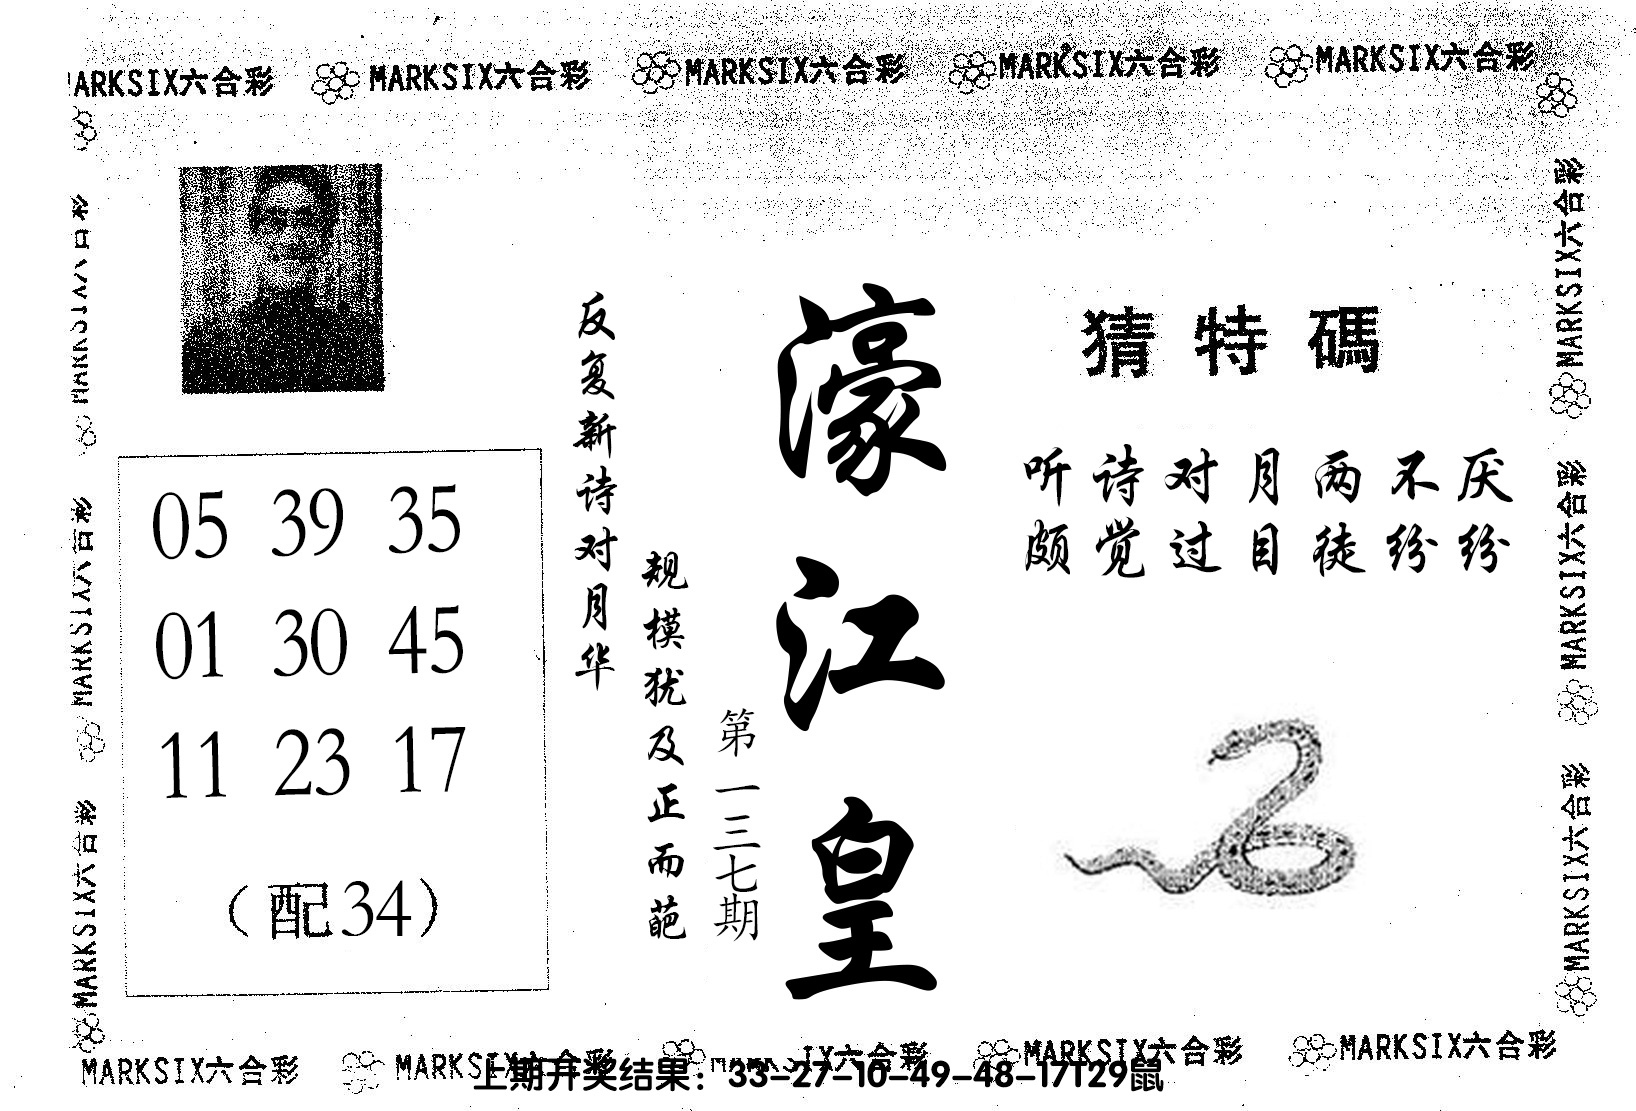 MARKSIX六合彩 MARKSIX六合彩 MARKSIX六合彩 MARKSIX六合彩 MARKSIX六合彩
MARKSIX六合彩
MARKSIX六合彩
MARKSIX六合彩
MARKSIX六合彩
MARKSIX六合彩
MARKSIX六合彩
猜特碼
听诗对月两不厌
颇觉过目徒纷纷
濠江皇
第一三七期
反复新诗对月华
规模犹及正而葩
05 39 35
01 30 45
11 23 17
（配34）
MARKSIX六合彩 MARKSIX六合彩 MARKSIX六合彩 MARKSIX六合彩 MARKSIX六合彩
上期开奖结果：33-27-10-49-48-17T29鼠